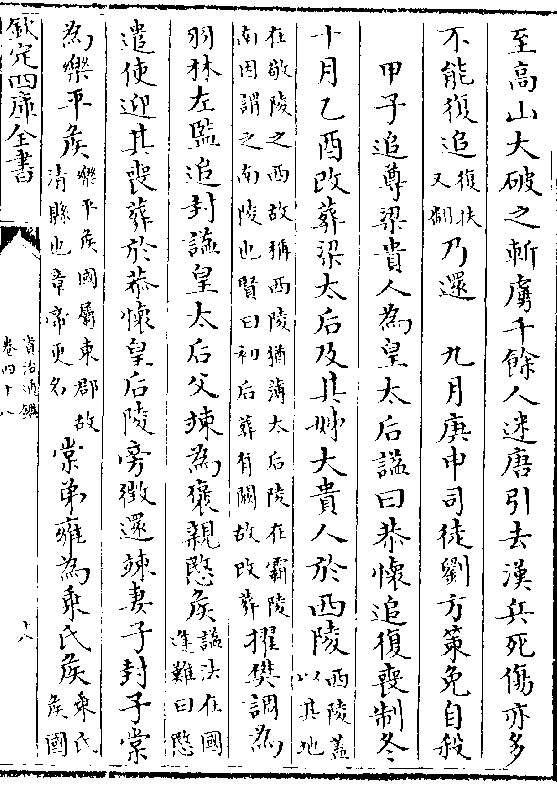 至高山大破之斬虜千餘人迷唐引去漢兵死傷亦多
不能復追復扶又翻乃還　九月庚申司徒劉方策免自殺
甲子追尊梁貴人為皇太后謚曰恭懷追復喪制冬
十月乙酉改葬梁太后及其姊大貴人於西陵西陵蓋以其地
在敬陵之西故稱西陵猶薄太后陵在霸陵南因謂之南陵也賢曰初后葬有闕故改葬擢樊調為
羽林左監追封謚皇太后父竦為褒親愍侯謚法在國逢難曰愍
遣使迎其喪葬於恭懷皇后陵旁徵還竦妻子封子棠
為樂平侯樂平侯國屬東郡故清縣也章帝更名棠弟雍為乘氏侯乘氏侯國
欽定四庫全書
資治通鑑
卷四十八
十八